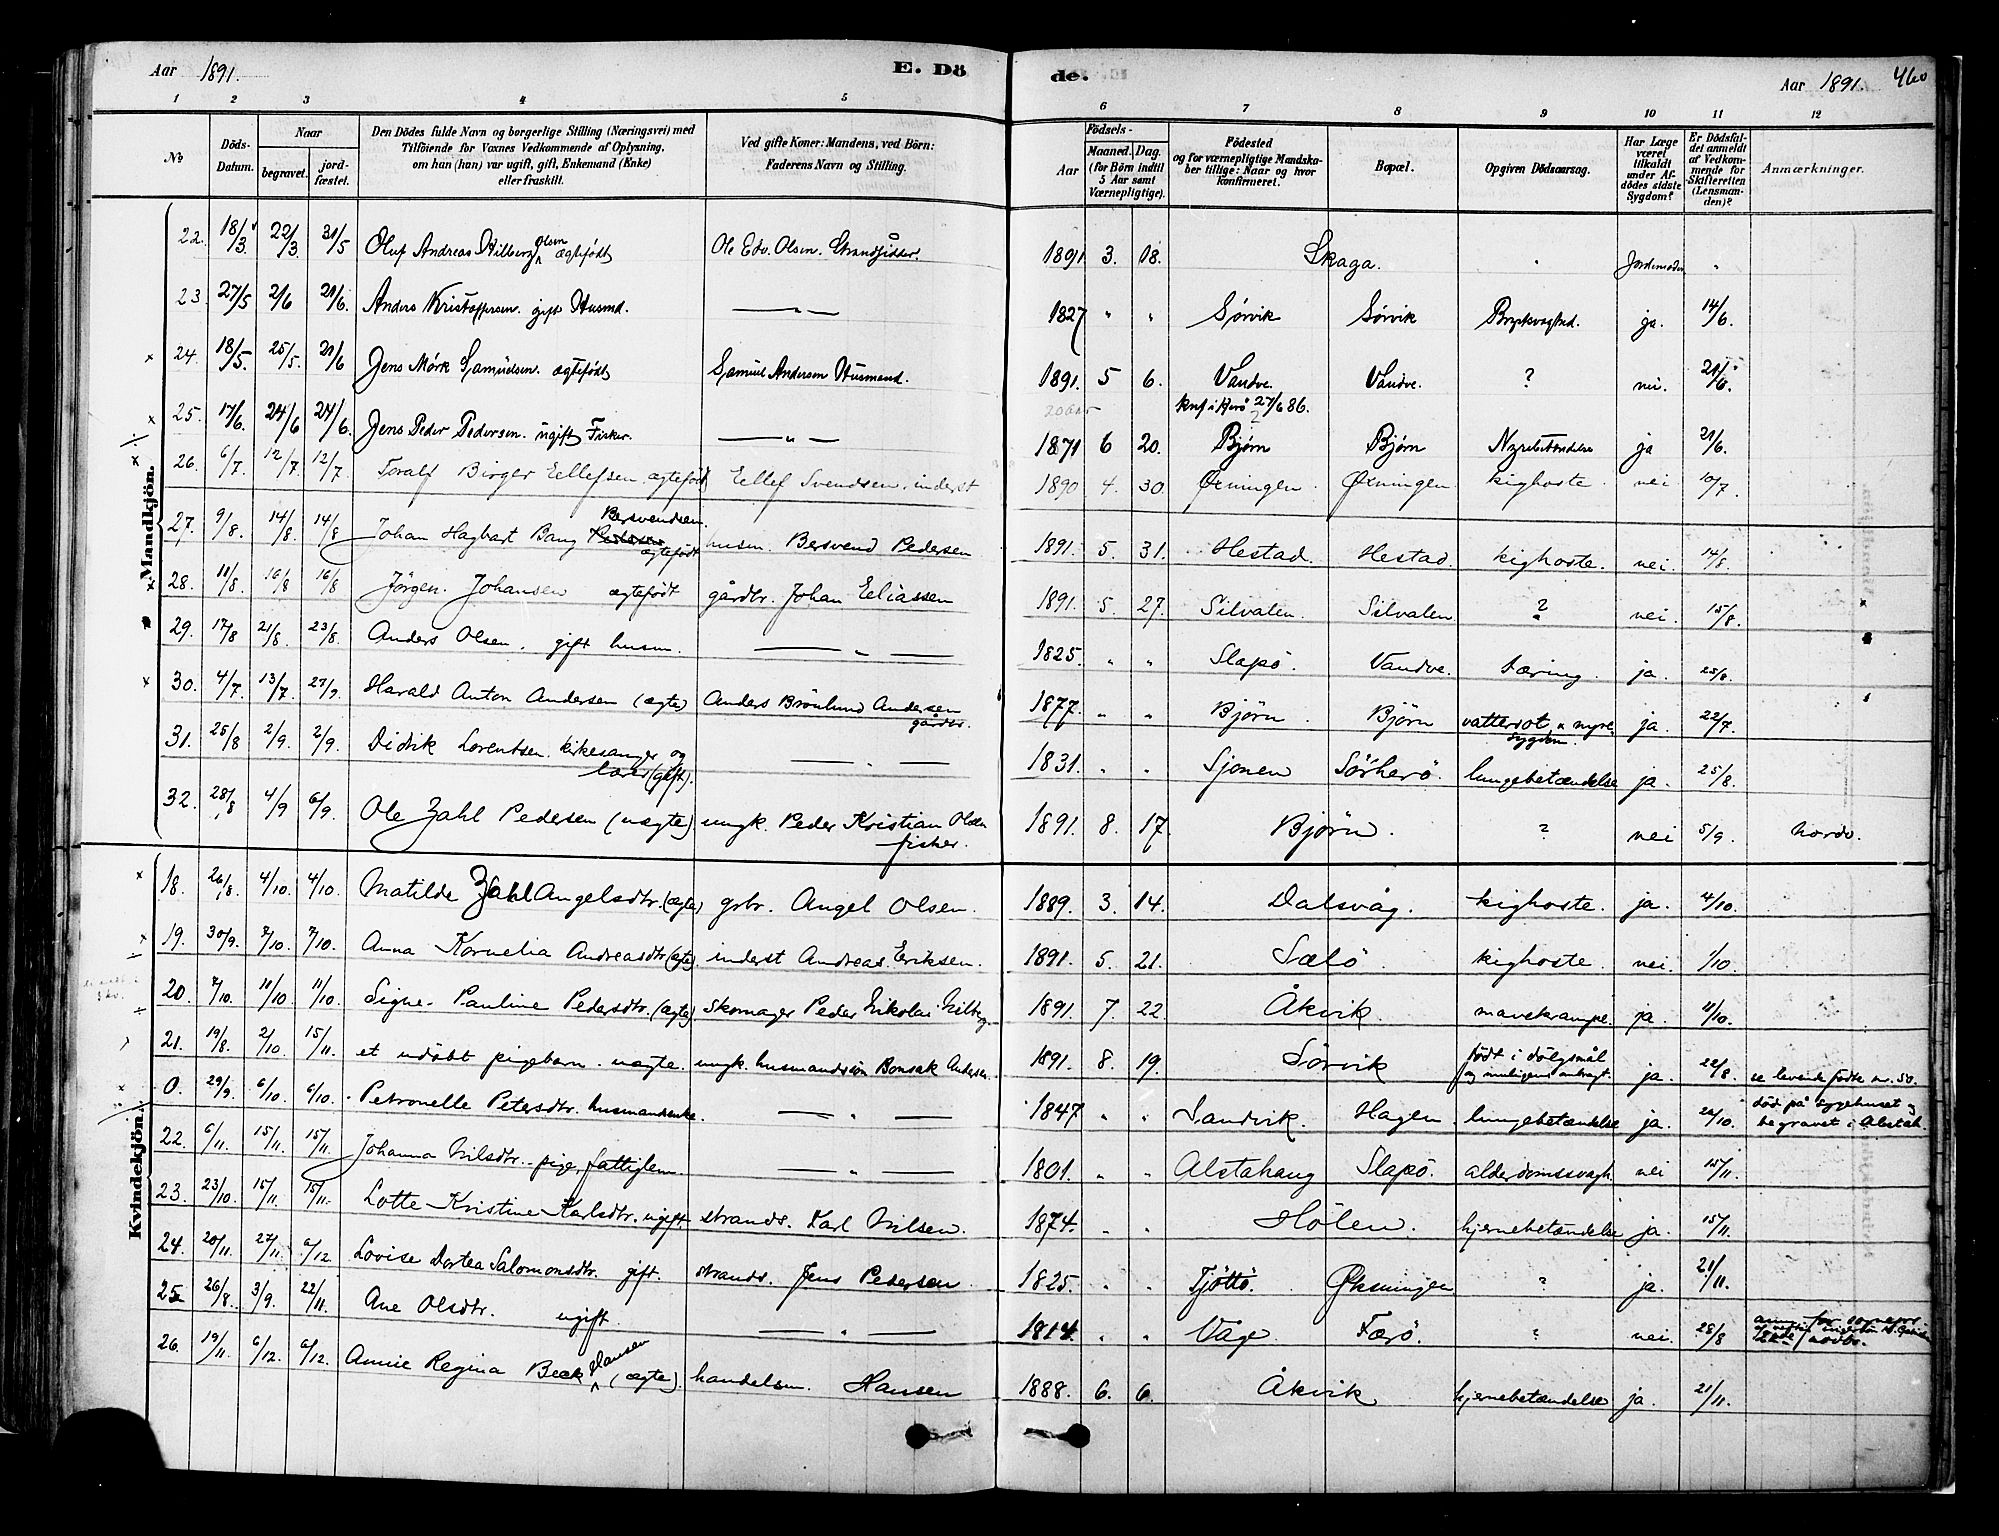 Aar 1891. E. Dö de. Aar 1891. 460
1 2 3 4 5 6 7 8 9 10 11 12
No Döds-Datum. Naar begravet. jordfæstet. Den Dödes fulde Navn og borgerlige Stilling (Næringsvei) med Tilföiende for Voxnes Vedkommende af Oplysning, om han (hun) var ugift, gift, Enkemand (Enke) eller fraskilt. Ved gifte Koner: Mandens, ved Börn: Faderens Navn og Stilling. Födsels- Aar Maaned. Dag. (for Börn indtil 5 Aar samt Værnepligtige). Födested og for værnepligtige Mandskaber tillige: Naar og hvor konfirmeret. Bopæl. Opgiven Dödsaarsag. Har Læge været tilkaldt under Afdödes sidste Sygdom? Er Dödsfaldet anmeldt af Vedkommende for Skifteretten (Lensmanden)? Anmærkninger.
Mandkjön.
22. 18/3 22/3 31/5 Oluf Andreas Hilberg Olsen ægtefödt Ole Edv. Olsen. Strandsidder. 1891 3. 18. Skaga. " Jordemoder "
23. 27/5 2/6 21/6. Anders Kristoffersen. gift Husmd. — " — 1827 " " Sørvik Sørvik Brystsvaghed. ja. 14/6.
24. 18/5. 25/5. 21/6 Jens Mörk Samuelsen. ægtefödt Samuel Andersen Husmand. 1891. 5 6. Vandve. Vandve. ? nei. 21/6.
25. 17/6. 24/6 24/6. Jens Peder Pedersen. ugift Fisker. — " — 1871 6 20. knf i Herö 27/6 86. Bjørn Bjørn Nyrebetændelse ja 21/6.
26. 6/7. 12/7. 12/7 Toralf Birger Ellefsen ægtefödt Ellef Svendsen. inderst 1890 4. 30. Øxningen. Øxningen kighoste. nei 10/7.
27. 9/8. 14/8. 14/8 Johan Hagbart Bang Pedersen Bersvendsen. ægtefödt husm. Bersvend Pedersen 1891. 5. 31. Hestad. Hestad. kighoste. nei. 14/8.
28. 11/8 16/8 16/8 Jörgen. Johansen ægtefödt gårdbr. Johan Eliassen 1891. 5. 27. Silvalen. Silvalen. ? nei. 15/8.
29. 17/8 21/8. 23/8. Anders Olsen, gift husm. — " — 1825. " " Slapö. Vandve. tæring. ja. 25/8.
30. 4/7. 13/7. 27/9. Harald Anton Andersen (ægte) Anders Brönlund Andersen gårdbr. 1877. " " Bjørn. Bjørn vattersot & nyresygdom. ja. 22/7.
31. 25/8 2/9. 2/9. Didrik Lorentsen. kirkesanger og lærer (gift). — " — 1831. " " Sjonen Sörherö. lungebetændelse ja. 25/8.
32. 28/8 4/9 6/9. Ole Zahl Pedersen (uægte) ungk. Peder Kristian Olsen fisker. 1891. 8. 17. Bjørn. ? nei 5/9. hovdv.
Kvindekjön.
18. 26/8. 4/10. 4/10. Matilde Zahl Angelsdtr. (ægte) gbr. Angel Olsen. 1889. 3. 14. Dalsvåg. kighoste. ja. 4/10.
19. 30/9. 7/10. 7/10. Anna Kornelia Andreasdtr (ægte) inderst Andreas Eriksen. 1891. 5. 21. Sælö. kighoste. nei. 1/10.
20. 7/10. 11/10 11/10. Signe Pauline Pedersdtr. (ægte) Skomager Peder Nikolai Hilberg. 1891. 7 22. Åkvik. mavekrampe. ja. 11/10.
21. 19/8. 2/10. 15/11. et udöbt pigebarn. uægte. ungk. husmandssön Bonsak Andersen 1891. 8. 19. Sörvik födt i dölgsmål og muligens ombragt. ja. 22/8. se levende födte nr. 50.
0. 29/9. 6/10. 6/10. Petronelle Petersdtr. husmandsenke. — " — 1847 " " Sandvik. Hagen. lungebetændelse ja. 24/10. död på sygehuset og begravet i Alstah.
22. 6/11. 15/11. 15/11. Johanna Nilsdtr. pige, fattiglem — " — 1801. " " Alstahaug Slapö. alderdomssvagh. nei 15/11.
23. 23/10. 15/11. 15/11. Lotte Kristine Karlsdtr. ugift strands. Karl Nilsen. 1874. " " Hölen. hjernebetændelse ja. 15/11.
24. 20/11. 27/11. 6/12. Lovise Dortea Salomonsdtr. gift. strands. Jens Pedersen. 1825. " " Tjöttö. Øksningen ? ja. 21/11.
25 26/8. 3/9. 22/11. Ane Olsdtr. ugift. — " — 1814. " " Våge. Færö. ? nei. 28/8
26. 19/11. 6/12. 6/12. Annie Regina Beck Hansen (ægte). handelsm. Hansen 1888. 6. 6. Åkvik hjernebetændelse ja. 21/11.